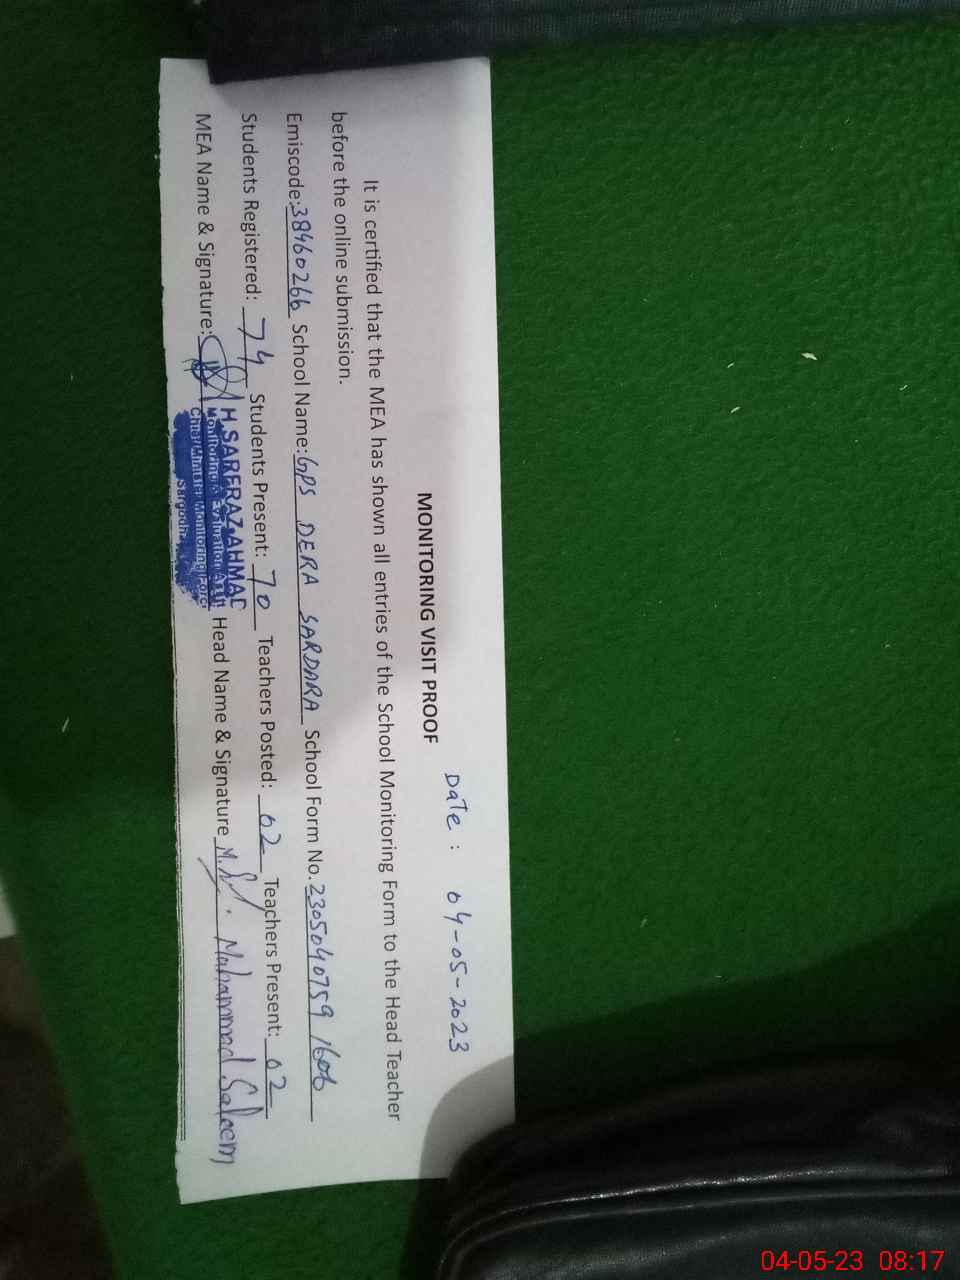 MONITORING VISIT PROOF
Date : 04-05-2023
It is certified that the MEA has shown all entries of the School Monitoring Form to the Head Teacher
before the online submission.
Emiscode:38460266 School Name:GPS DERA SARDARA School Form No.2305040759 1606
Students Registered: 74 Students Present: 70 Teachers Posted: 02 Teachers Present: 02
MEA Name & Signature: Head Name & Signature Muhammad Saleem
H.SARFRAZ AHMAD
Monitoring & Evaluation
Chief Minister Monitoring Force
Sargodha
04-05-23 08:17